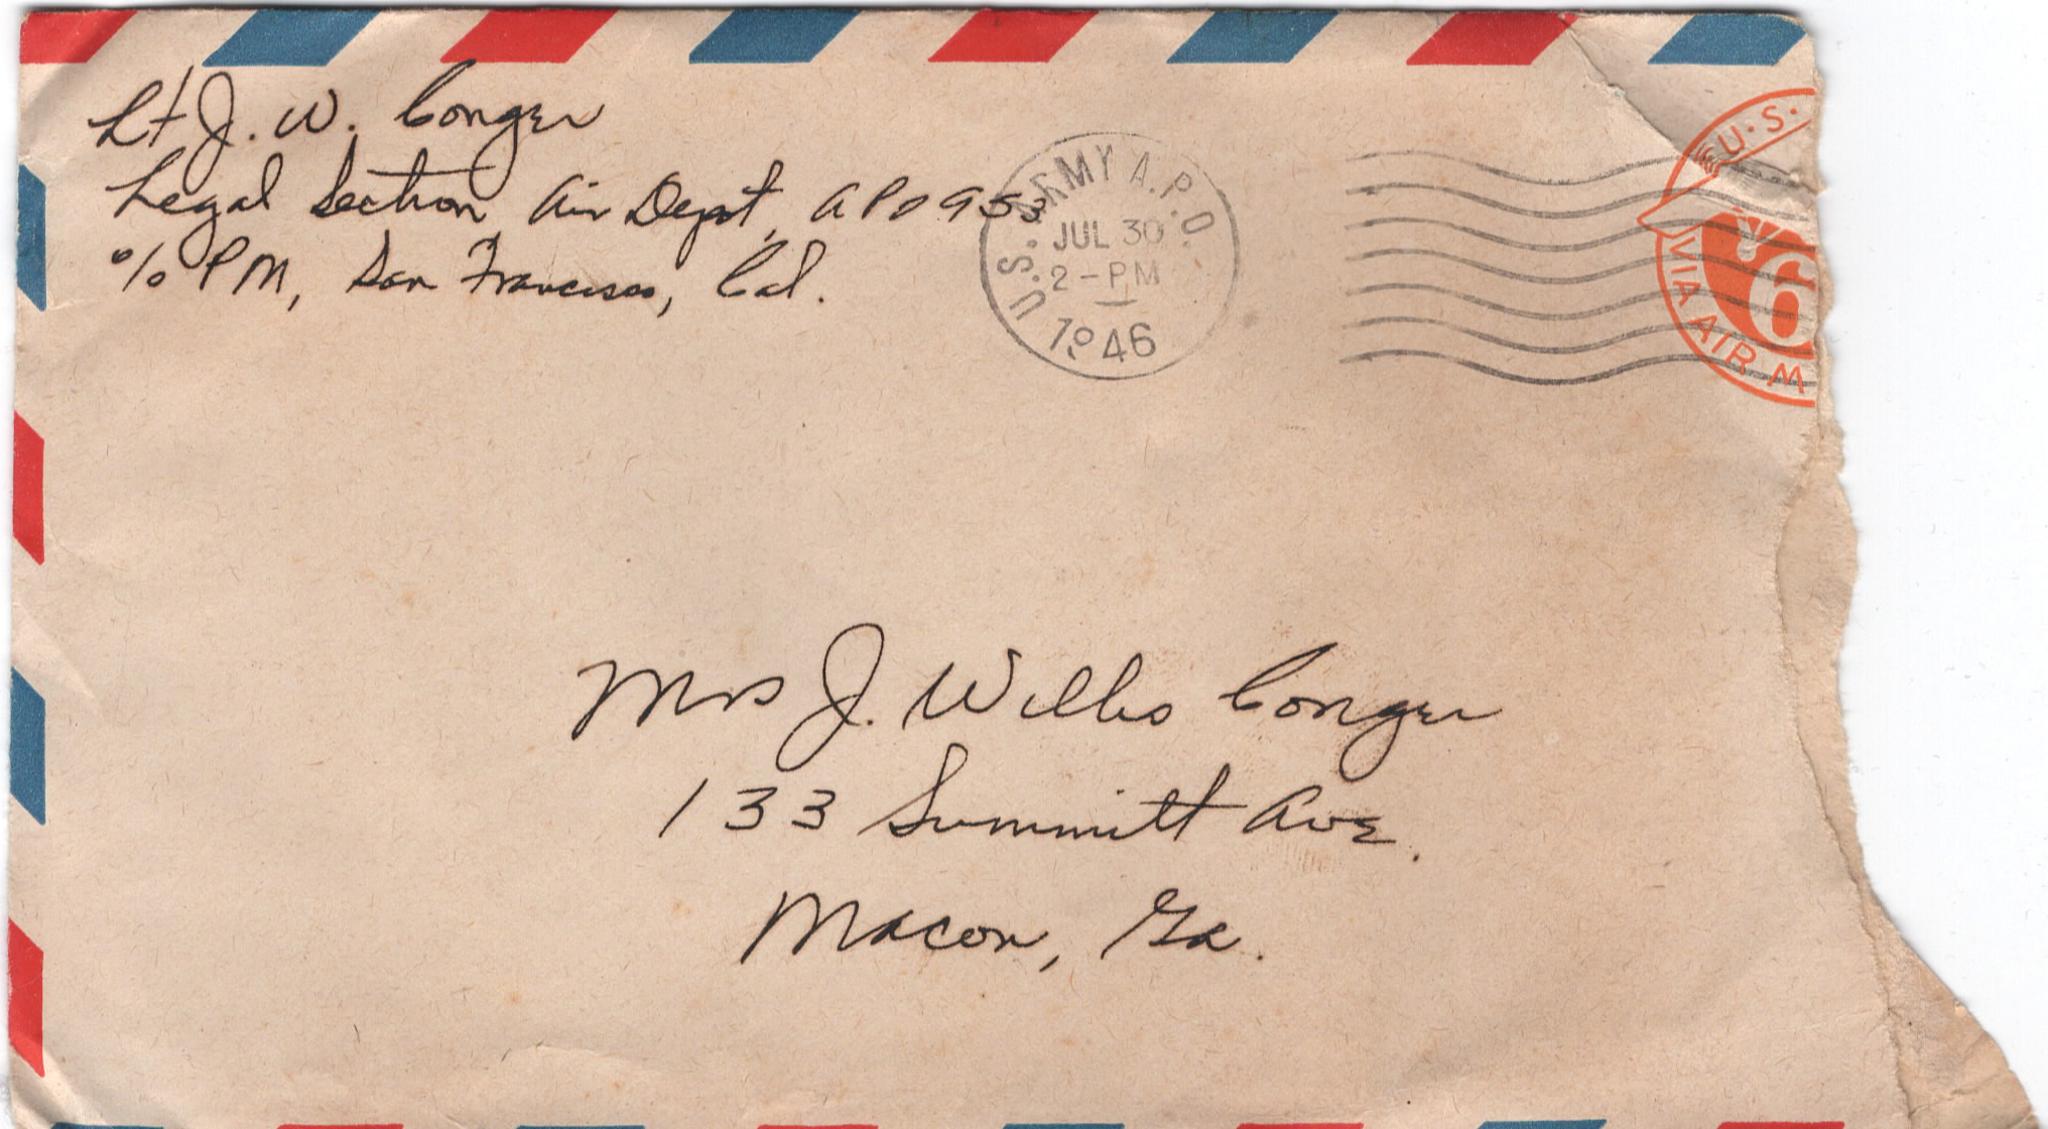 Lt J. W. Conger
Legal Section Air Depot, APO 953
c/o PM, San Francisco, Cal.
U.S. ARMY A.P.O.
JUL 30
2-PM
1946
U.S.
6
VIA AIR M
Mrs J. Willis Conger
133 Summitt Ave.
Macon, Ga.